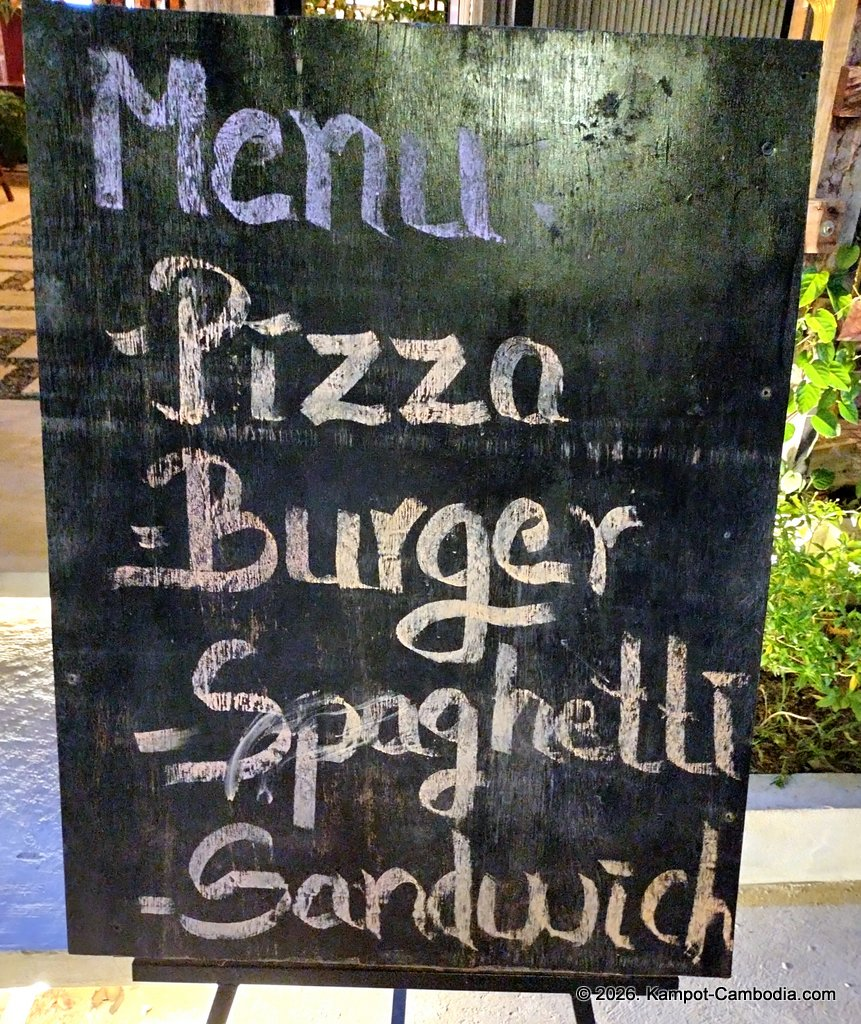 Menu.
-Pizza
-Burger
-Spaghetti
-Sandwich
© 2026. Kampot-Cambodia.com